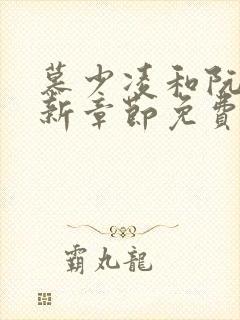 慕少凌和阮
新章節免費
霸丸龍